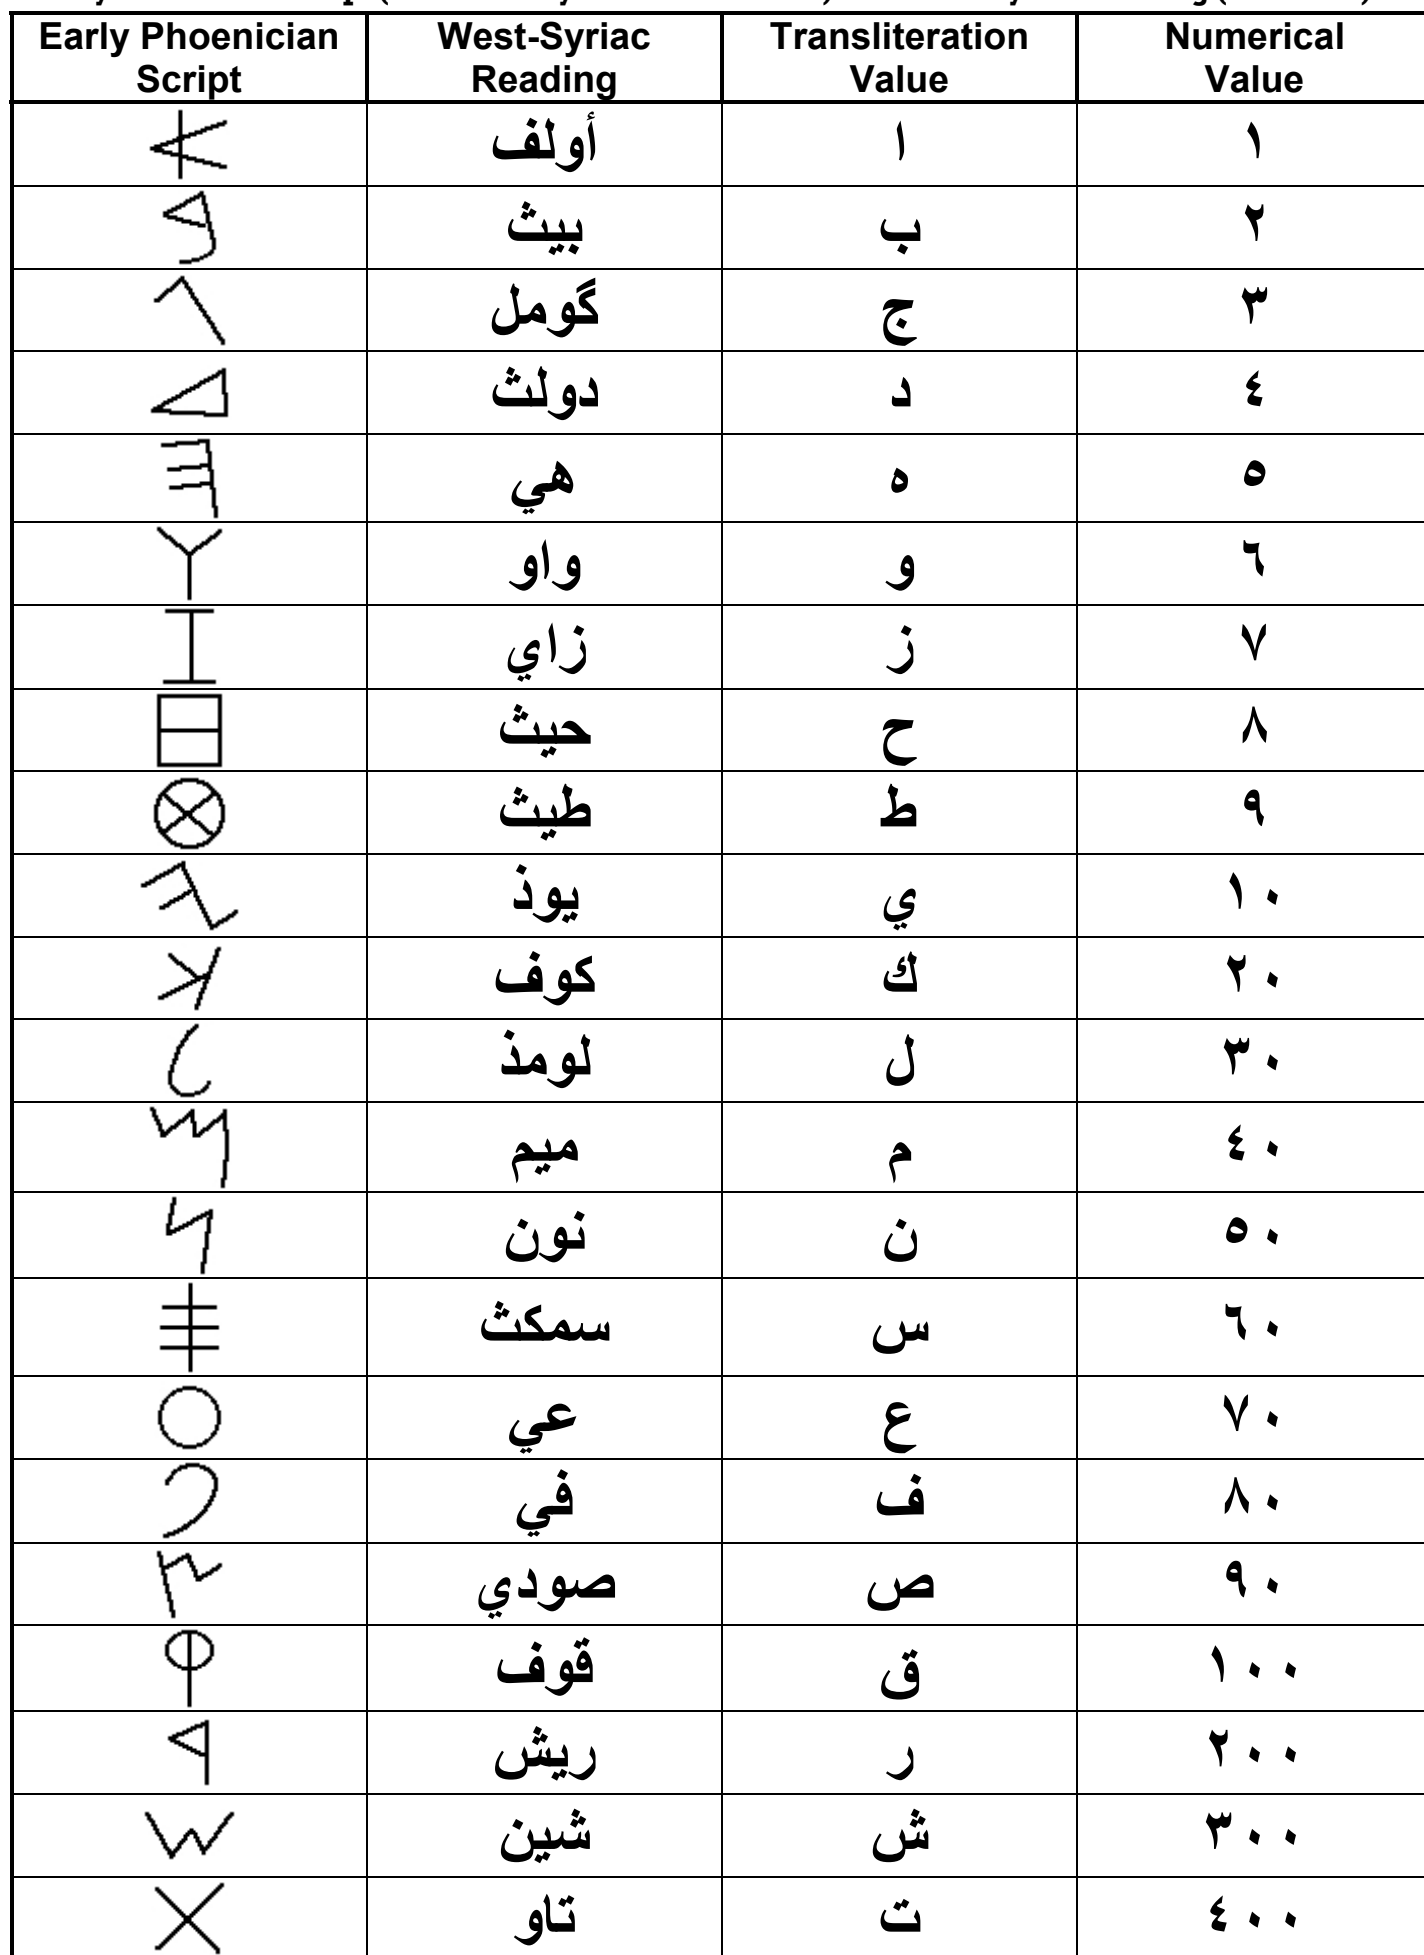 Early Phoenician Script | West-Syriac Reading | Transliteration Value | Numerical Value
𐤀 | أولف | ا | ١
𐤁 | بيث | ب | ٢
𐤂 | گومل | ج | ٣
𐤃 | دولث | د | ٤
𐤄 | هي | ه | ٥
𐤅 | واو | و | ٦
𐤆 | زاي | ز | ٧
𐤇 | حيث | ح | ٨
𐤈 | طيث | ط | ٩
𐤉 | يوذ | ي | ١٠
𐤊 | كوف | ك | ٢٠
𐤋 | لومذ | ل | ٣٠
𐤌 | ميم | م | ٤٠
𐤍 | نون | ن | ٥٠
𐤎 | سمكث | س | ٦٠
𐤏 | عي | ع | ٧٠
𐤐 | في | ف | ٨٠
𐤑 | صودي | ص | ٩٠
𐤒 | قوف | ق | ١٠٠
𐤓 | ريش | ر | ٢٠٠
𐤔 | شين | ش | ٣٠٠
𐤕 | تاو | ت | ٤٠٠